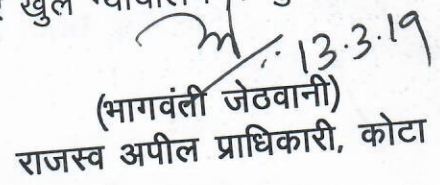 खुले
13.3.19
(भागवंती जेठवानी)
राजस्व अपील प्राधिकारी, कोटा